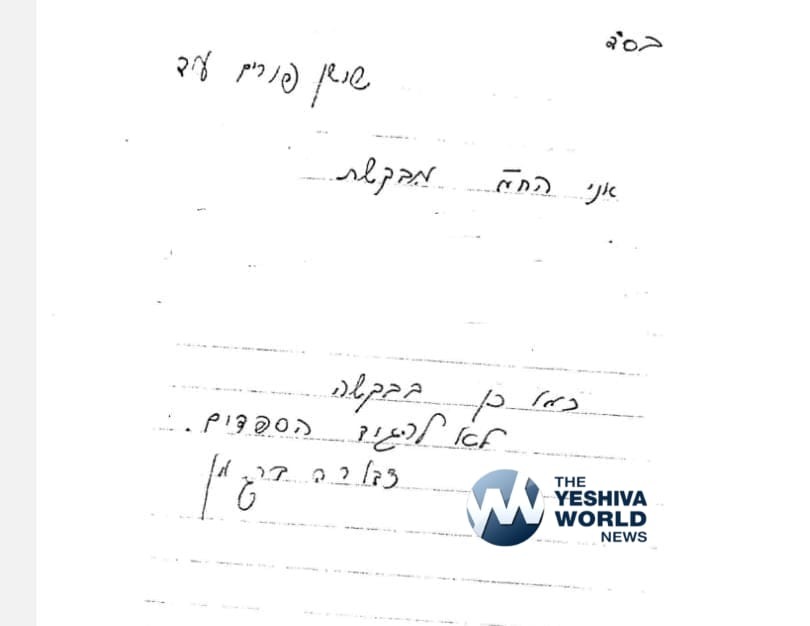 בס"ד
שושן פורים ע"ד
אני החת"מ מבקשת
כמו כן בבקשה
לא להגיד הספדים.
דבורה
THE
YESHIVA
WORLD
NEWS